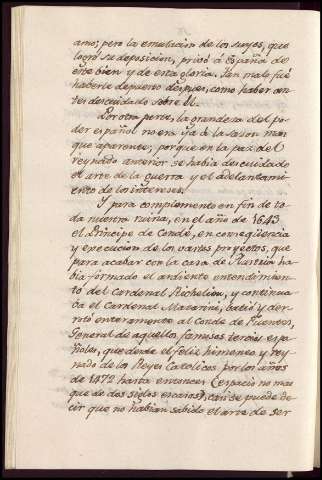 amo; pero la emulacion de los suyos, que
logró su deposicion, privó á España de
este bien y de esta gloria. Tan malo fué
haberle depuesto despues, como haber an-
tes descuidado sobre él.
Por otra parte, la grandeza del po-
der español no era ya á la sazon mas
que aparente; porque en la paz del
reynado anterior se habia descuidado
el arte de la guerra y el adelantami-
ento de los intereses.
Y para complemento en fin de to-
da nuestra ruina, en el año de 1643
el Principe de Condé, en conseqüencia
y execucion de los vastos proyectos, que
para acabar con la casa de Austria ha-
bia formado el ardiente entendimien-
to del Cardenal Richelieu, y continua-
ba el Cardenal Mazarini, batió y der-
rotó enteramente al Conde de Fuentes,
General de aquellos famosos tercios espa-
ñoles, que desde el feliz himeneo y rey-
nado de los Reyes Catolicos por los años
de 1472 hasta entonces (espacio no mas
que de dos siglos escasos), casi se puede de-
cir que no habian sabido el arte de ser